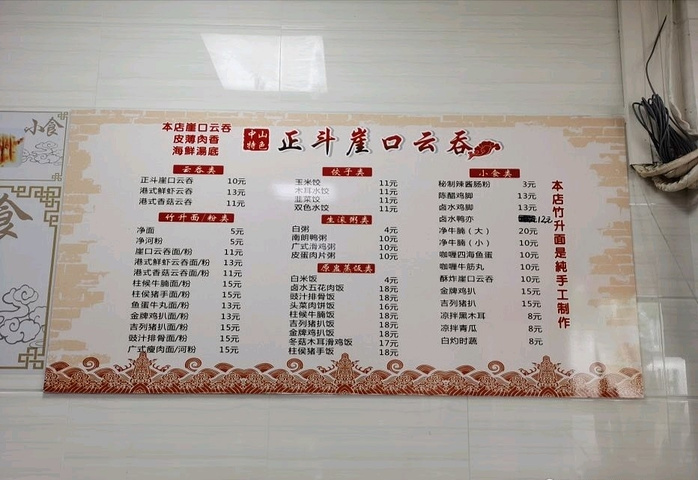 小食
食
本店崖口云吞
皮薄肉香
海鲜湯底
中山
特色
正斗崖口云吞
云吞类
正斗崖口云吞 10元
港式鲜虾云吞 13元
港式香菇云吞 11元
竹升面/粉类
净面 5元
净河粉 5元
崖口云吞面/粉 11元
港式鲜虾云吞面/粉 13元
港式香菇云吞面/粉 11元
柱候牛腩面/粉 15元
柱侯猪手面/粉 15元
鱼蛋牛丸面/粉 13元
金牌鸡扒面/粉 13元
吉列猪扒面/粉 15元
豉汁排骨面/粉 15元
广式瘦肉面/河粉 15元
饺子类
玉米饺 11元
木耳水饺 11元
韭菜饺 11元
双色水饺 11元
生滚粥类
白粥 4元
南朗鸭粥 10元
广式滑鸡粥 10元
皮蛋肉片粥 10元
原盅蒸饭类
白米饭 4元
卤水五花肉饭 18元
豉汁排骨饭 18元
头菜肉饼饭 16元
柱候牛腩饭 18元
吉列猪扒饭 18元
金牌鸡扒饭 18元
冬菇木耳滑鸡饭 17元
柱侯猪手饭 18元
小食类
秘制辣酱肠粉 3元
陈醋鸡脚 13元
卤水鸡脚 13元
卤水鸭亦 12元
净牛腩（大） 20元
净牛腩（小） 10元
咖喱四海鱼蛋 10元
咖喱牛筋丸 10元
酥炸崖口云吞 10元
金牌鸡扒 15元
吉列猪扒 15元
凉拌黑木耳 8元
凉拌青瓜 8元
白灼时蔬 8元
本店竹升面是純手工制作